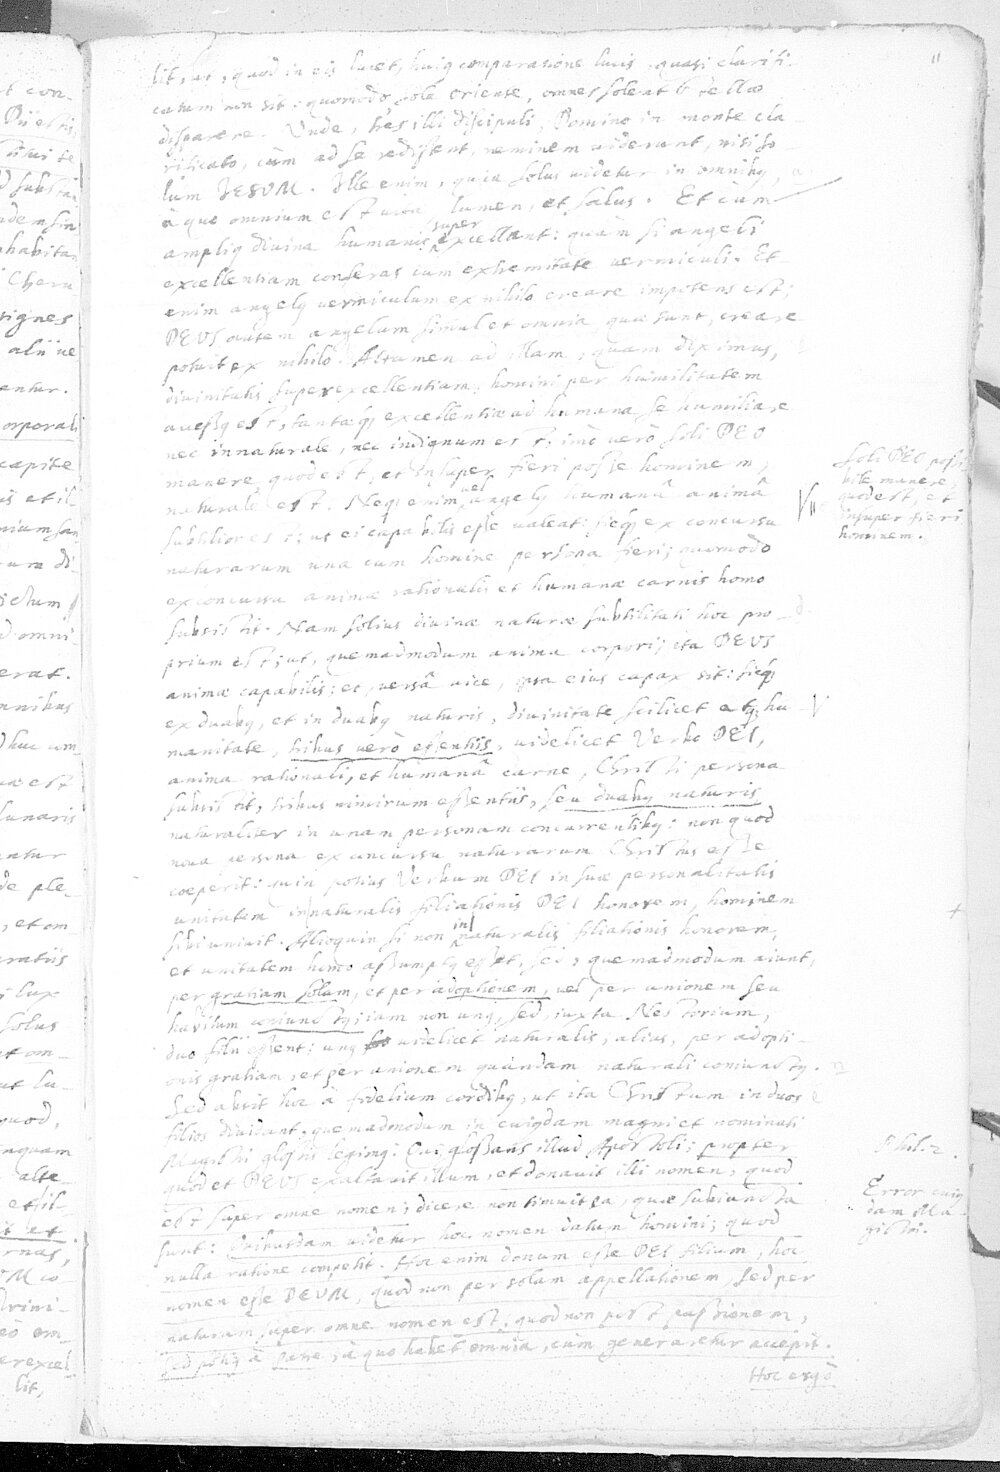 11
lit, ut, quod in eis lucet, huiq comparatione lucis quasi clarifi-
catum non sit: quomodo sole oriente, omnes solent & stellæ
disparere. Unde, tres illi discipuli, Domino in monte cla-
rificato, cùm ad se redissent, neminem viderunt, nisi so
lum IESUM. Ille enim, quia solus videtur in omnibq,
àque omnium est vita, lumen, et salus. Et cùm
ampliq divina humanis super excellant: quàm si angeli
excellentiam conferas cum extremitate vermiculi. Et
enim angelq vermiculum ex nihilo creare impotens est;
DEUS autem angelum simul et omnia, quæ sunt, creare
potuit ex nihilo. Attamen ad illam, quam diximus,
divinitatis superexcellentiam, homini per humilitatem
avessq est, tantæq excellentiæ ad humana se humiliare
nec innaturale, nec indignum est: imò verò soli DEO
manere quod est, et insuper fieri posse hominem,
naturale est. Neq enim vel angelq humanâ animâ
subtilior est, ut ei capabilis esse valeat: sicq ex concursu
naturarum una cum homine persona fieri; quomodo
ex concursu animæ rationalis et humanæ carnis homo
subsistit. Nam solius divinæ naturæ subtilitati hoc pro-
prium est; ut, quemadmodum anima corpori; ita DEUS
animæ capabilis: et, versâ vice, ipsa eius capax sit: sicq
ex duabq, et in duabq naturis, divinitate scilicet atq hu-
manitate, tribus verò essentiis, videlicet Verbo DEI,
anima rationali, et humanâ carne, Christi persona
subsistit, tribus nimirum essentiis, seu duabq naturis
naturaliter in unam personam concurrentibq: non quod
nova persona ex concursu naturarum Christus esse
coeperit: quin potius Verbum DEI in suæ personalitatis
unitatem innaturalis filiationis DEI honorem, hominem
sibi univit. Alioquin si non in naturalis filiationis honorem,
et unitatem homo assumptq esset, sed, quemadmodum aiunt,
per gratiam solam, et per adoptionem, vel per unionem seu
habitum coniunctq; iam non unq, sed, iuxta Nestorium,
duo filii essent: unq videlicet naturalis, alius, per adopti
onis gratiam, et per unionem quandam naturali coniunctq.
Sed absit hoc à fidelium cordibq, ut ita Christum in duos
filios dividant, quemadmodum in cuiqdam magni et nominati
Magistri glossis legimq: Qui glossans illud Apostoli; propter
quod et DEUS exaltavit illum, et donavit illi nomen, quod
est super omne nomen; dicere non timuit ea, quæ subiuncta
sunt: Quibusdam videtur hoc nomen datum homini; quod
nulla ratione competit. Hoc enim donum esse DEI filium, hoc
nomen esse DEUM, quod non per solam appellationem, sed per
naturam super omne nomen est, quod non post passionem,
sed potiq à Patre, à quo habet omnia, cùm generaretur accepit.
Hoc ergò
Soli DEO possi
bile manere,
quod est, et
insuper fieri
hominem.
Phil. 2.
Error cuiq
dam Ma-
gistri.